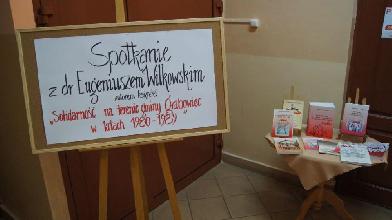 Spotkanie
z dr Eugeniuszem Wilkowskim
autorem książki
"Solidarność na terenie gminy Grabowiec
w latach 1980-1989"